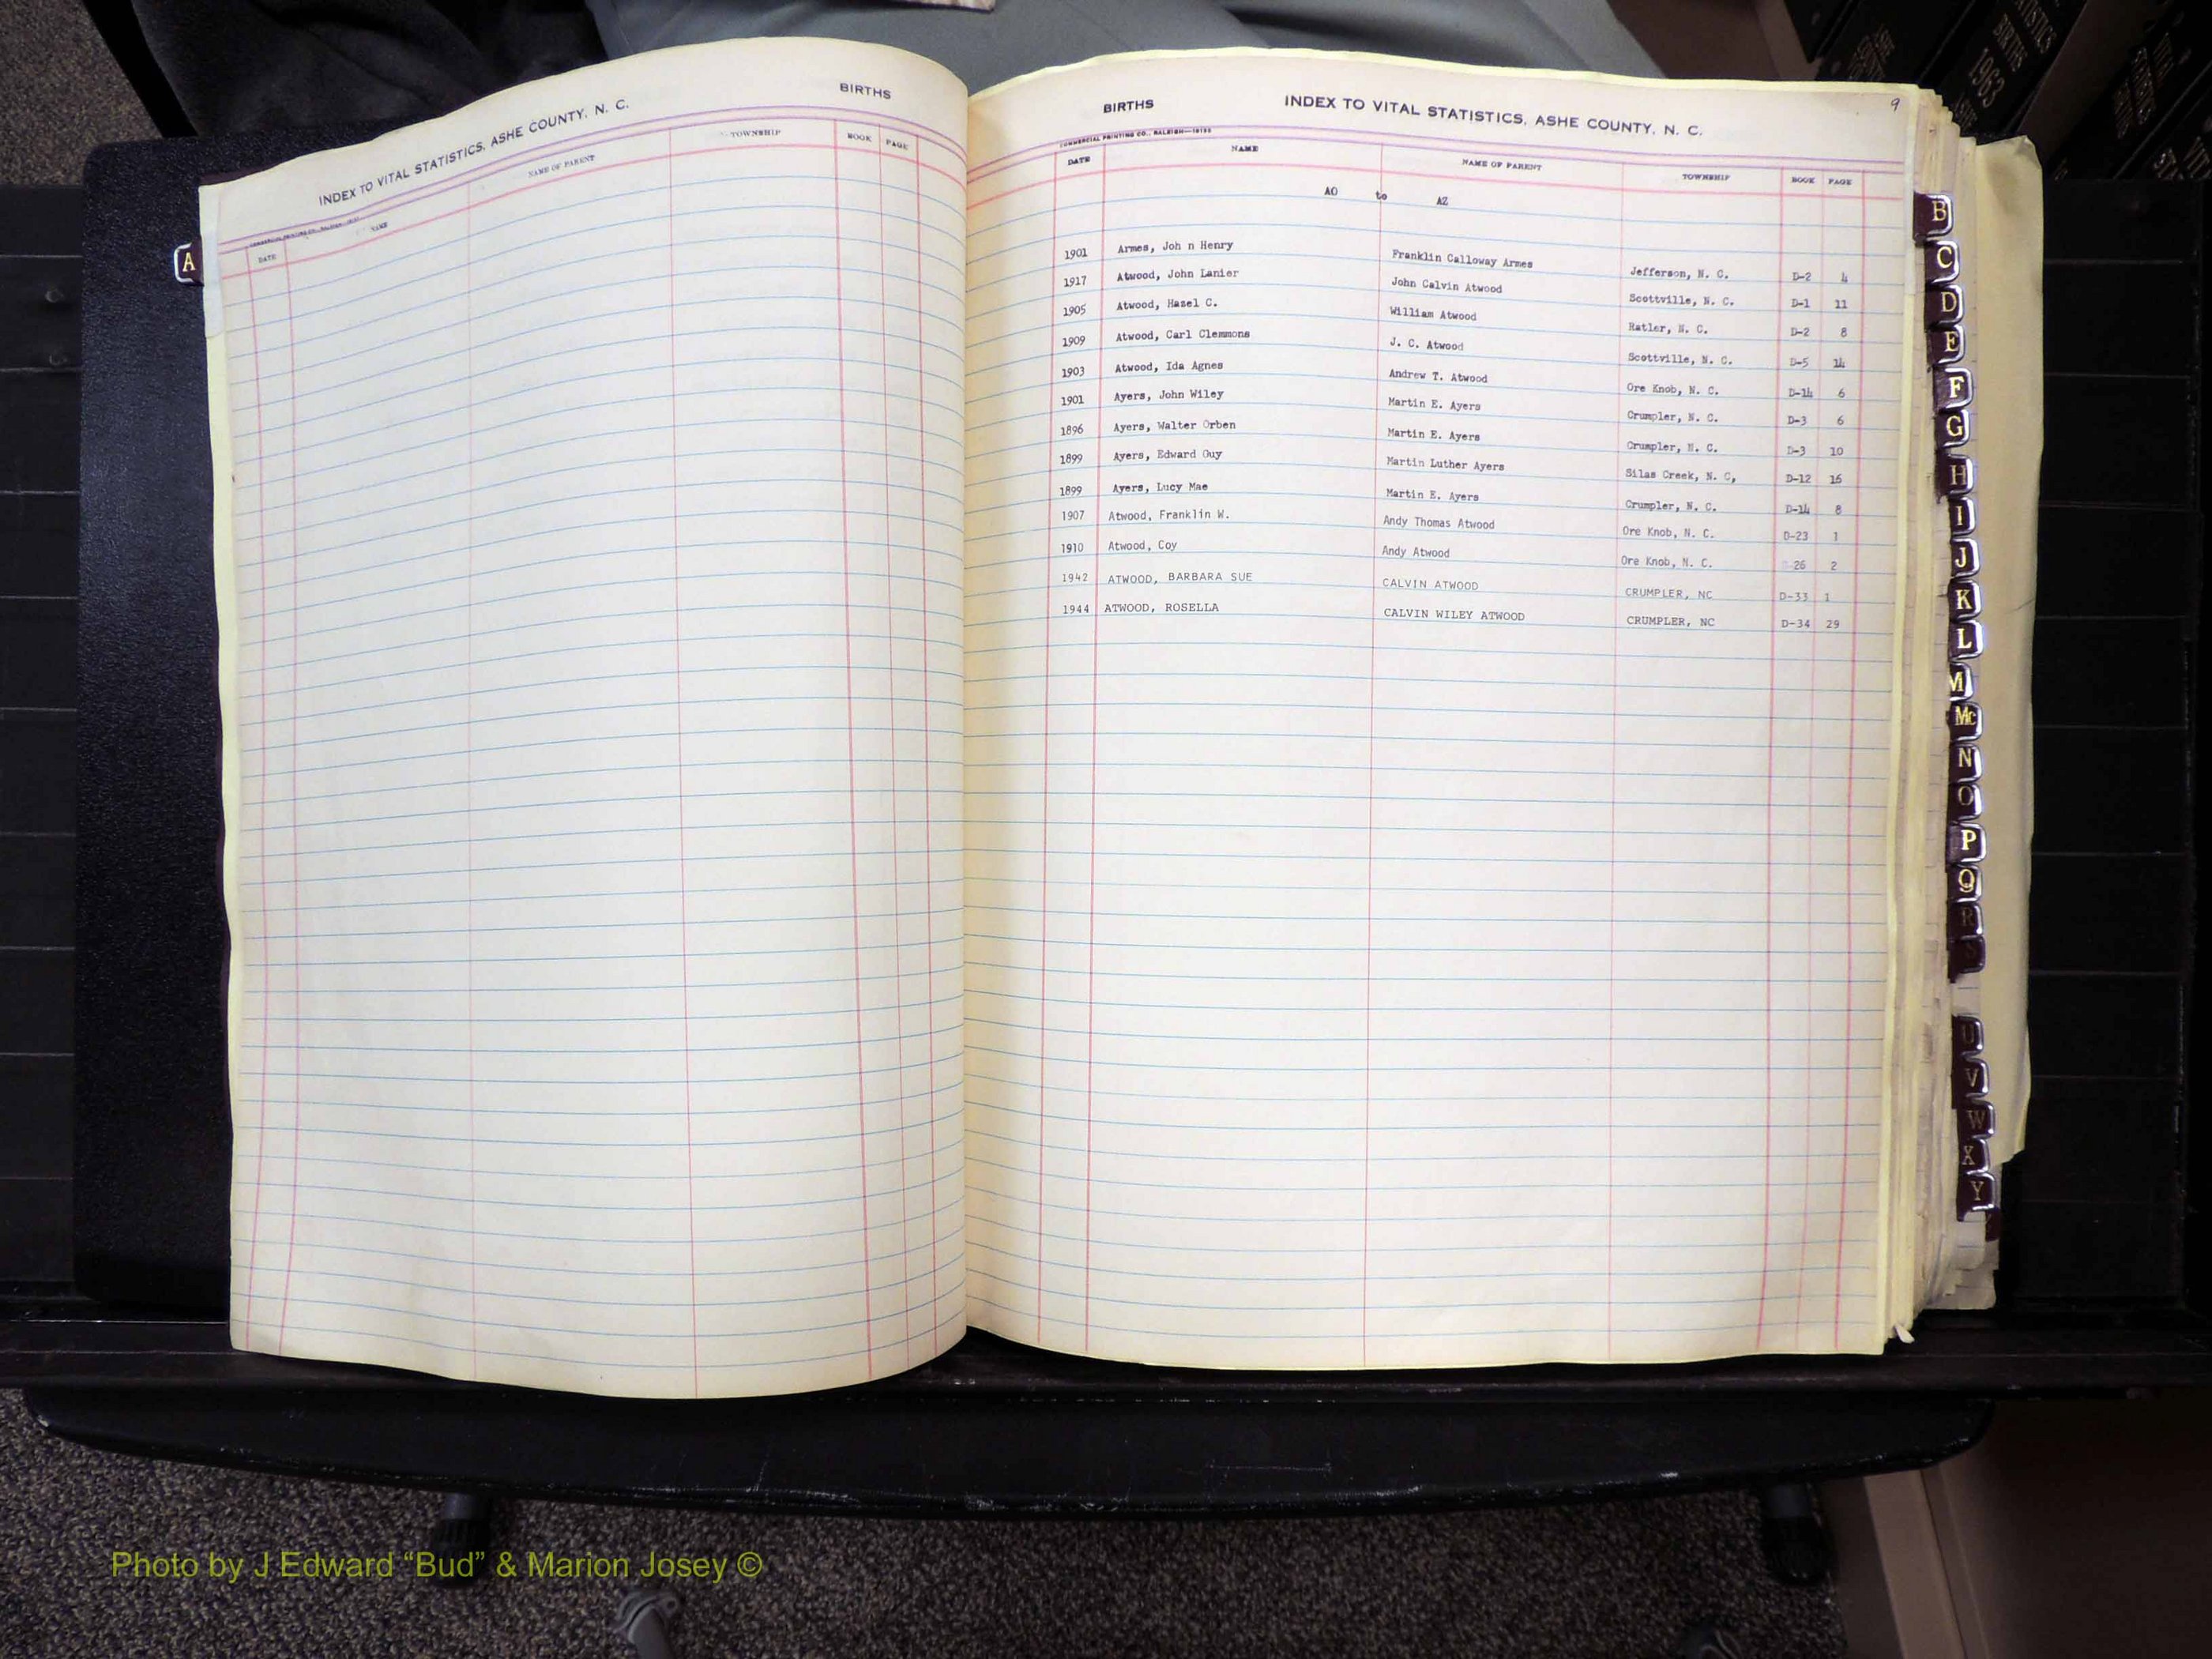 INDEX TO VITAL STATISTICS, ASHE COUNTY, N. C. BIRTHS
DATE NAME NAME OF PARENT TOWNSHIP BOOK PAGE
A
9
BIRTHS INDEX TO VITAL STATISTICS, ASHE COUNTY, N. C.
COMMERCIAL PRINTING CO., RALEIGH
DATE NAME NAME OF PARENT TOWNSHIP BOOK PAGE
AO to AZ
1901 Armes, Joh n Henry Franklin Calloway Armes Jefferson, N. C. D-2 4
1917 Atwood, John Lanier John Calvin Atwood Scottville, N. C. D-1 11
1905 Atwood, Hazel C. William Atwood Ratler, N. C. D-2 8
1909 Atwood, Carl Clemmons J. C. Atwood Scottville, N. C. D-5 14
1903 Atwood, Ida Agnes Andrew T. Atwood Ore Knob, N. C. D-14 6
1901 Ayers, John Wiley Martin E. Ayers Crumpler, N. C. D-3 6
1896 Ayers, Walter Orben Martin E. Ayers Crumpler, N. C. D-3 10
1899 Ayers, Edward Guy Martin Luther Ayers Silas Creek, N. C, D-12 16
1899 Ayers, Lucy Mae Martin E. Ayers Crumpler, N. C. D-14 8
1907 Atwood, Franklin W. Andy Thomas Atwood Ore Knob, N. C. D-23 1
1910 Atwood, Coy Andy Atwood Ore Knob, N. C. 26 2
1942 ATWOOD, BARBARA SUE CALVIN ATWOOD CRUMPLER, NC D-33 1
1944 ATWOOD, ROSELLA CALVIN WILEY ATWOOD CRUMPLER, NC D-34 29
B
C
D
E
F
G
H
I
J
K
L
M
Mc
N
O
P
Q
R
U
V
W
X
Y
BIRTHS
1963
Photo by J Edward “Bud” & Marion Josey ©